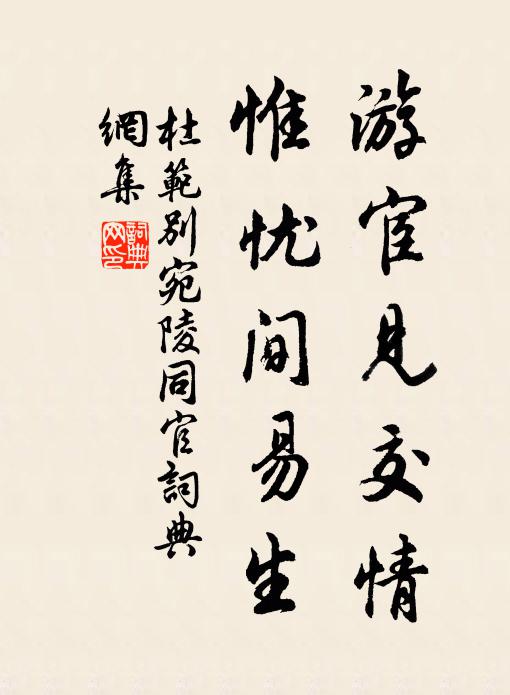 游宦見交情
惟忧間易生
杜範別宛陵同官詞典
網集
詞典
网印